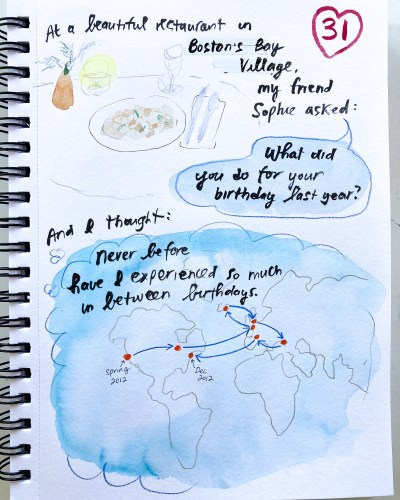 31
At a beautiful restaurant in
Boston's Bay
Village,
my friend
Sophie asked:
What did
you do for your
birthday last year?
And I thought:
Never before
have I experienced so much
in between birthdays.
Spring
2012
Dec
2012